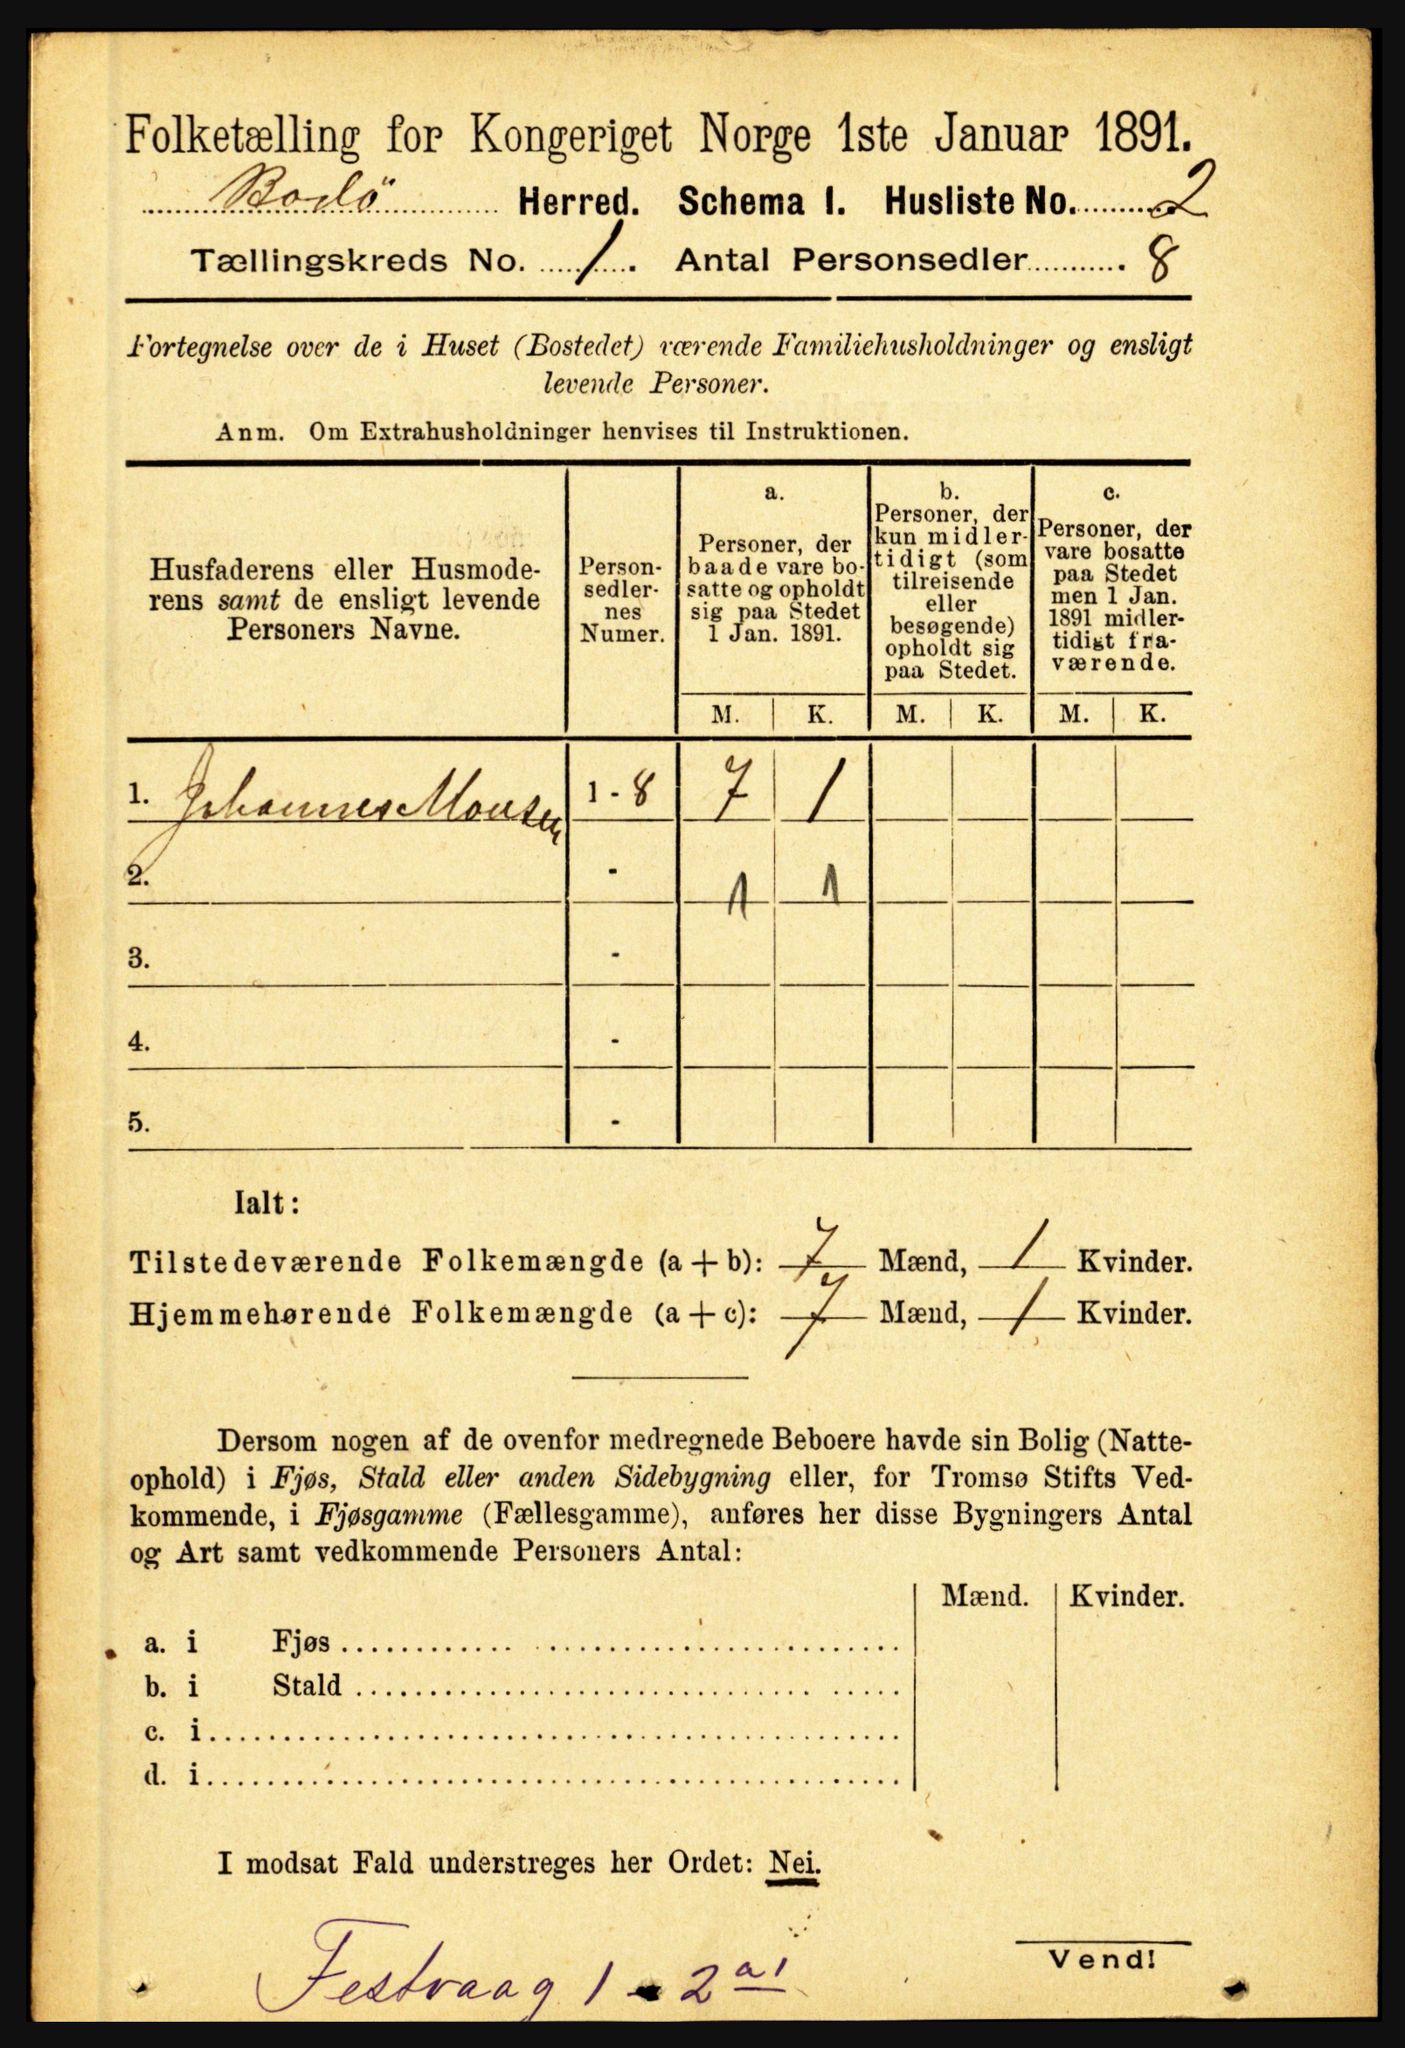 Folketælling for Kongeriget Norge 1ste Januar 1891.
Bodö Herred. Schema I. Husliste No. 2
Tællingskreds No. 1. Antal Personsedler 8
Fortegnelse over de i Huset (Bostedet) værende Familiehusholdninger og ensligt
levende Personer.
Anm. Om Extrahusholdninger henvises til Instruktionen.
Husfaderens eller Husmode-
rens samt de ensligt levende
Personers Navne.
Person-
sedler-
nes
Numer.
a.
Personer, der
baade vare bo-
satte og opholdt
sig paa Stedet
1 Jan. 1891.
b.
Personer, der
kun midler-
tidigt (som
tilreisende
eller
besøgende)
opholdt sig
paa Stedet.
c.
Personer, der
vare bosatte
paa Stedet
men 1 Jan.
1891 midler-
tidigt fra-
værende.
M. K. M. K. M. K.
1. Johannes Monsen 1 - 8 7 1
2. - 1 1
3. -
4. -
5. -
Ialt:
Tilstedeværende Folkemængde (a + b): 7 Mænd, 1 Kvinder.
Hjemmehørende Folkemængde (a + c): 7 Mænd, 1 Kvinder.
Dersom nogen af de ovenfor medregnede Beboere havde sin Bolig (Natte-
ophold) i Fjøs, Stald eller anden Sidebygning eller, for Tromsø Stifts Ved-
kommende, i Fjøsgamme (Fællesgamme), anføres her disse Bygningers Antal
og Art samt vedkommende Personers Antal:
Mænd. Kvinder.
a. i Fjøs
b. i Stald
c. i
d. i
I modsat Fald understreges her Ordet: Nei.
Vend!
Festvaag 1 - 2 a1